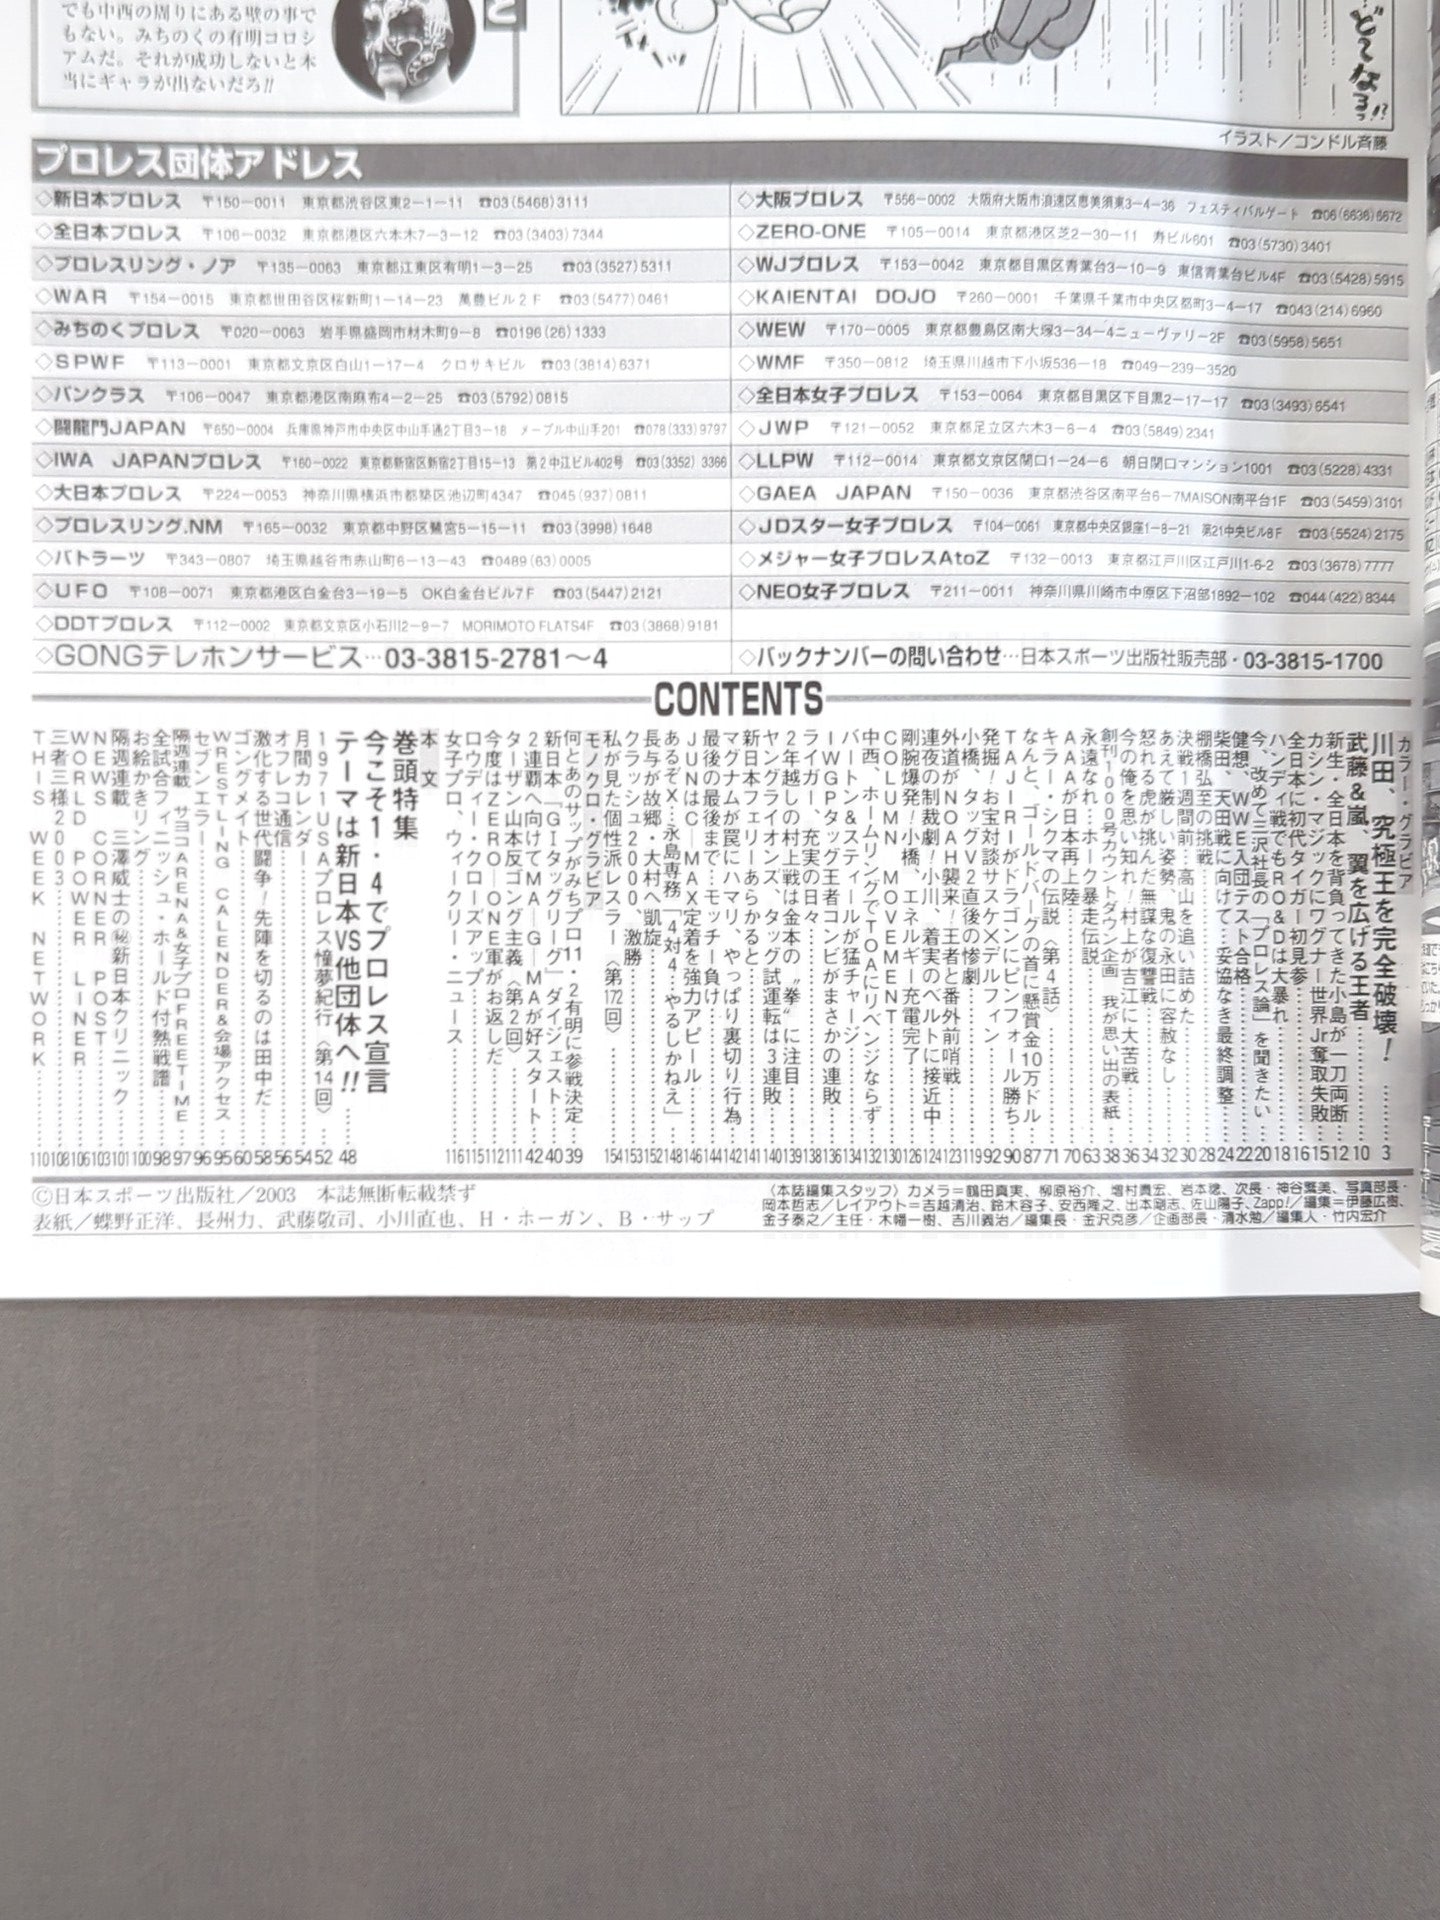 でも中西の周りにある壁の事で
もない。みちのくの有明コロシ
アムだ。それが成功しないと本
当にギャラが出ないだろ!!
と
ど〜なるっ!?
イラスト／コンドル斉藤
プロレス団体アドレス
◇新日本プロレス 〒150－0011 東京都渋谷区東2－1－11 ☎03(5468)3111
◇全日本プロレス 〒106－0032 東京都港区六本木7－3－12 ☎03(3403)7344
◇プロレスリング・ノア 〒135－0063 東京都江東区有明1－3－25 ☎03(3527)5311
◇WAR 〒154－0015 東京都世田谷区桜新町1－14－23 萬豊ビル2F ☎03(5477)0461
◇みちのくプロレス 〒020－0063 岩手県盛岡市材木町9－8 ☎0196(26)1333
◇SPWF 〒113－0001 東京都文京区白山1－17－4 クロサキビル ☎03(3814)6371
◇パンクラス 〒106－0047 東京都港区南麻布4－2－25 ☎03(5792)0815
◇闘龍門JAPAN 〒650－0004 兵庫県神戸市中央区中山手通2丁目3－18 メープル中山手201 ☎078(333)9797
◇IWA JAPANプロレス 〒160－0022 東京都新宿区新宿2丁目15－13 第2中江ビル402号 ☎03(3352)3366
◇大日本プロレス 〒224－0053 神奈川県横浜市都築区池辺町4347 ☎045(937)0811
◇プロレスリング.NM 〒165－0032 東京都中野区鷺宮5－15－11 ☎03(3998)1648
◇バトラーツ 〒343－0807 埼玉県越谷市赤山町6－13－43 ☎0489(63)0005
◇UFO 〒108－0071 東京都港区白金台3－19－5 OK白金台ビル7F ☎03(5447)2121
◇DDTプロレス 〒112－0002 東京都文京区小石川2－9－7 MORIMOTO FLATS4F ☎03(3868)9181
◇GONGテレホンサービス…03-3815-2781〜4
◇大阪プロレス 〒556－0002 大阪府大阪市浪速区恵美須東3－4－36 フェスティバルゲート ☎06(6636)6672
◇ZERO-ONE 〒105－0014 東京都港区芝2－30－11 寿ビル601 ☎03(5730)3401
◇WJプロレス 〒153－0042 東京都目黒区青葉台3－10－9 東信青葉台ビル4F ☎03(5428)5915
◇KAIENTAI DOJO 〒260－0001 千葉県千葉市中央区都町3－4－17 ☎043(214)6960
◇WEW 〒170－0005 東京都豊島区南大塚3－34－4ニューヴァリー2F ☎03(5958)5651
◇WMF 〒350－0812 埼玉県川越市下小坂536－18 ☎049－239－3520
◇全日本女子プロレス 〒153－0064 東京都目黒区下目黒2－17－17 ☎03(3493)6541
◇JWP 〒121－0052 東京都足立区六木3－6－4 ☎03(5849)2341
◇LLPW 〒112－0014 東京都文京区関口1－24－6 朝日関口マンション1001 ☎03(5228)4331
◇GAEA JAPAN 〒150－0036 東京都渋谷区南平台6－7MAISON南平台1F ☎03(5459)3101
◇JDスター女子プロレス 〒104－0061 東京都中央区銀座1－8－21 第21中央ビル8F ☎03(5524)2175
◇メジャー女子プロレスAtoZ 〒132－0013 東京都江戸川区江戸川1-6-2 ☎03(3678)7777
◇NEO女子プロレス 〒211－0011 神奈川県川崎市中原区下沼部1892－102 ☎044(422)8344
◇バックナンバーの問い合わせ…日本スポーツ出版社販売部・03-3815-1700
CONTENTS
カラー・グラビア
川田、究極王を完全破壊！ 3
武藤&嵐、翼を広げる王者 10
新生・全日本を背負ってきた小島が一刀両断 12
カシン・マジックにワグナー世界Jr奪取失敗 15
全日本に初代タイガー初見参 16
ハンディ戦でもRO&Dは大暴れ 18
今、改めて三沢社長の「プロレス論」を聞きたい 20
健想、WWE入団テスト合格 22
柴田、天田戦に向けて…妥協なき最終調整 24
棚橋弘至の挑戦 28
決戦1週間前…高山を追い詰めた 30
あえて厳しい姿勢、鬼の永田に容赦なし 32
怒れる虎が挑んだ無謀な復讐戦 34
今の俺を思い知れ！村上が吉江に大苦戦 36
創刊1000号カウントダウン企画 我が思い出の表紙 38
永遠なれ…ホーク暴走伝説 63
AAAが日本再上陸 70
キラー・シクマの伝説〈第4話〉 71
なんと、ゴールドバーグの首に懸賞金10万ドル 87
TAJIRIがドラゴンにピンフォール勝ち 90
発掘！お宝対談サスケ×デルフィン 92
小橋、タッグV2直後の惨劇 119
外道がNOAH襲来！王者と番外前哨戦 123
連夜の制裁劇！小川、着実のベルトに接近中 124
剛腕爆発！小橋、エネルギー充電完了 126
COLUMN MOVEMENT 130
中西、ホームリングでTOAにリベンジならず 132
バートン&スティールが猛チャージ 134
IWGPタッグ王者コンビがまさかの連敗 136
ライガー、充実の日々 138
2年越しの村上戦は金本の〝拳〟に注目 139
ヤングライオンズ、タッグ試運転は3連敗 140
新日本フェリーあらかると 141
マグナムが罠にハマリ、やっぱり裏切り行為 142
最後の最後まで…モッチー負け 144
JUNはC－MAX定着を強力アピール 146
あるぞX…永島専務「4対4・やるしかねえ」 148
長与が故郷・大村へ凱旋 152
クラッシュ2000、激勝 153
私が見た個性派レスラー〈第172回〉 154
モノクロ・グラビア
何とあのサップがみちプロ11・2有明に参戦決定 39
新日本「GIタッグリーグ」ダイジェスト 40
2連覇へ向けてMA－G－MAが好スタート 42
ターザン山本反ゴング主義〈第2回〉 111
今度はZERO－ONE軍がお返しだ 112
ロウディー・クローズアップ 115
女子プロ、ウィークリー・ニュース 116
本 文
巻頭特集
今こそ1・4でプロレス宣言
テーマは新日本VS他団体へ!! 48
1971USAプロレス憧夢紀行〈第14回〉 52
月間カレンダー 54
オフレコ通信 56
激化する世代闘争！先陣を切るのは田中だ 58
ゴングメイト 60
WRESTLING CALENDER&会場アクセス 95
セブンエラー 96
隔週連載 サヨコARENA&女子プロFREETIME 97
全試合フィニッシュ・ホールド付熱戦譜 98
お絵かきリング 100
隔週連載 三澤威士の㊙新日本クリニック 101
NEWS CORNER POST 103
WORLD POWER LINER 106
三者三様2003 108
THIS WEEK NETWORK 110
©日本スポーツ出版社／2003 本誌無断転載禁ず
表紙／蝶野正洋、長州力、武藤敬司、小川直也、H・ホーガン、B・サップ
〈本誌編集スタッフ〉カメラ＝鶴田真実、柳原裕介、増村貴宏、岩本稔、次長・神谷繁美、写真部長・
岡本哲志／レイアウト＝吉越清治、鈴木容子、安西隆之、出本剛志、佐山陽子、Zapp!／編集＝伊藤広樹、
金子泰之／主任・木幡一樹、吉川義治／編集長・金沢克彦／企画部長・清水勉／編集人・竹内宏介